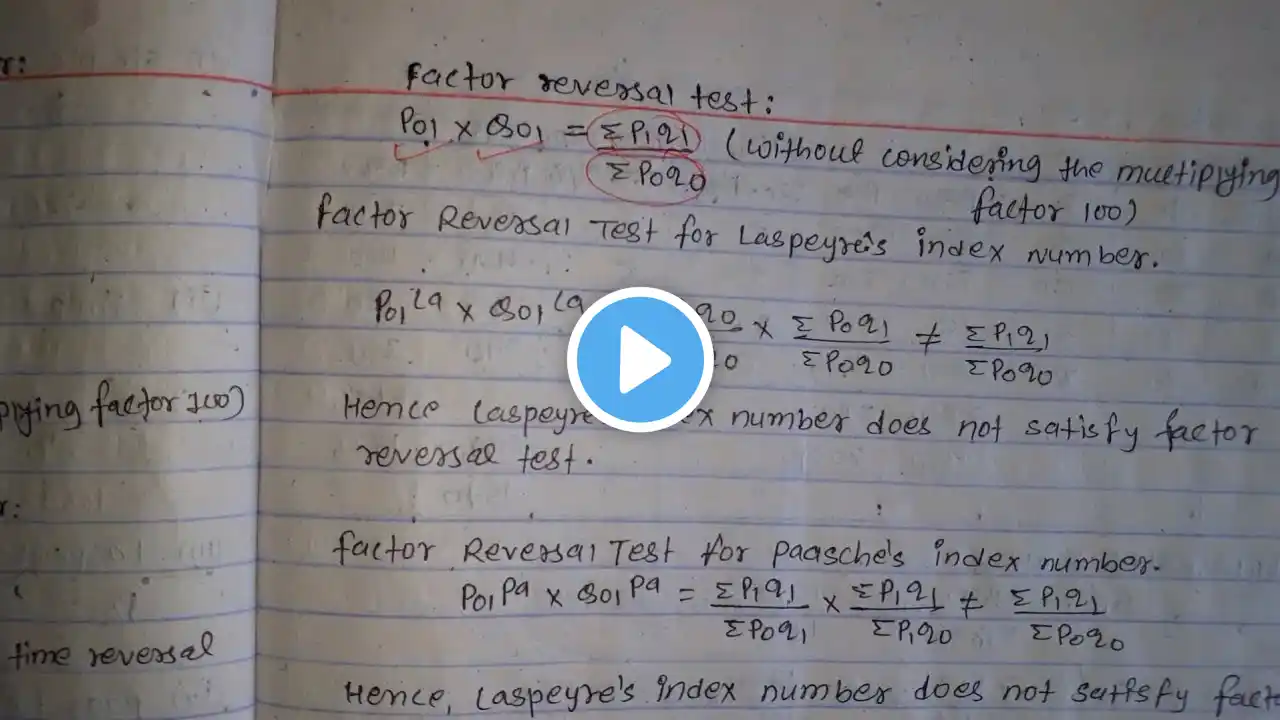 r:
plying factor 100)
r:
time reversal
Factor reversal test:
P01 x Q01 = ΣP1q1 / ΣP0q0 (without considering the multiplying factor 100)
Factor Reversal Test for Laspeyre's index number.
P01 La x Q01 La q0 / q0 x ΣP0q1 / ΣP0q0 ≠ ΣP1q1 / ΣP0q0
Hence Laspeyre ex number does not satisfy factor
reversal test.
factor Reversal Test for Paasche's index number.
P01 Pa x Q01 Pa = ΣP1q1 / ΣP0q1 x ΣP1q1 / ΣP1q0 ≠ ΣP1q1 / ΣP0q0
Hence, Laspeyre's index number does not satisfy fact